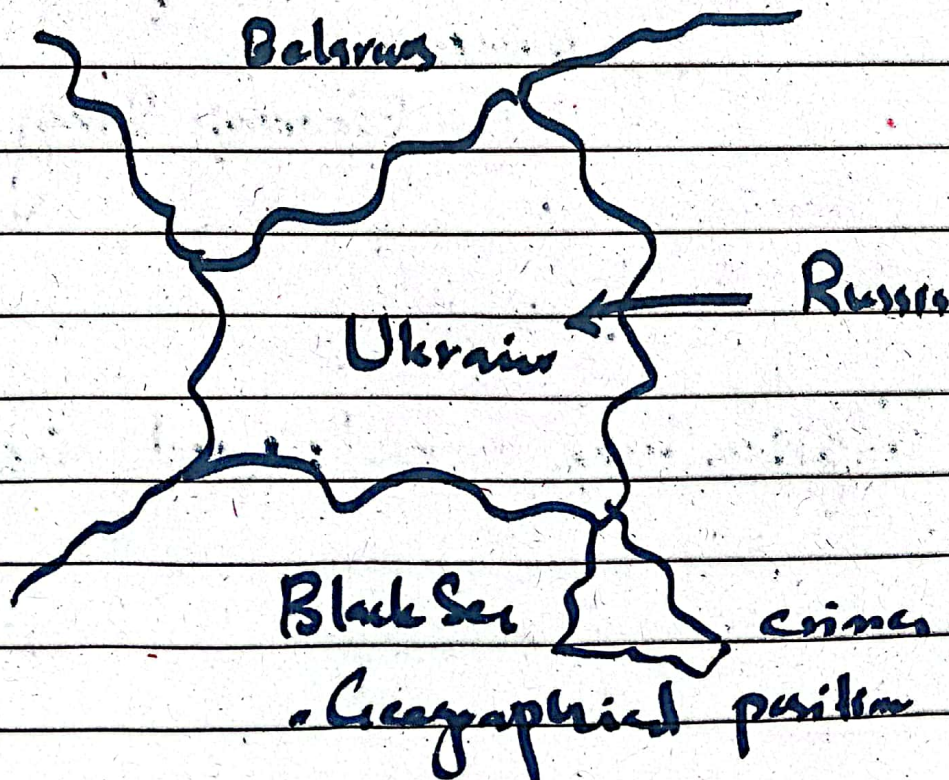 Belarus
Russia
Ukrain
Black Sea
crimea
Geographical position